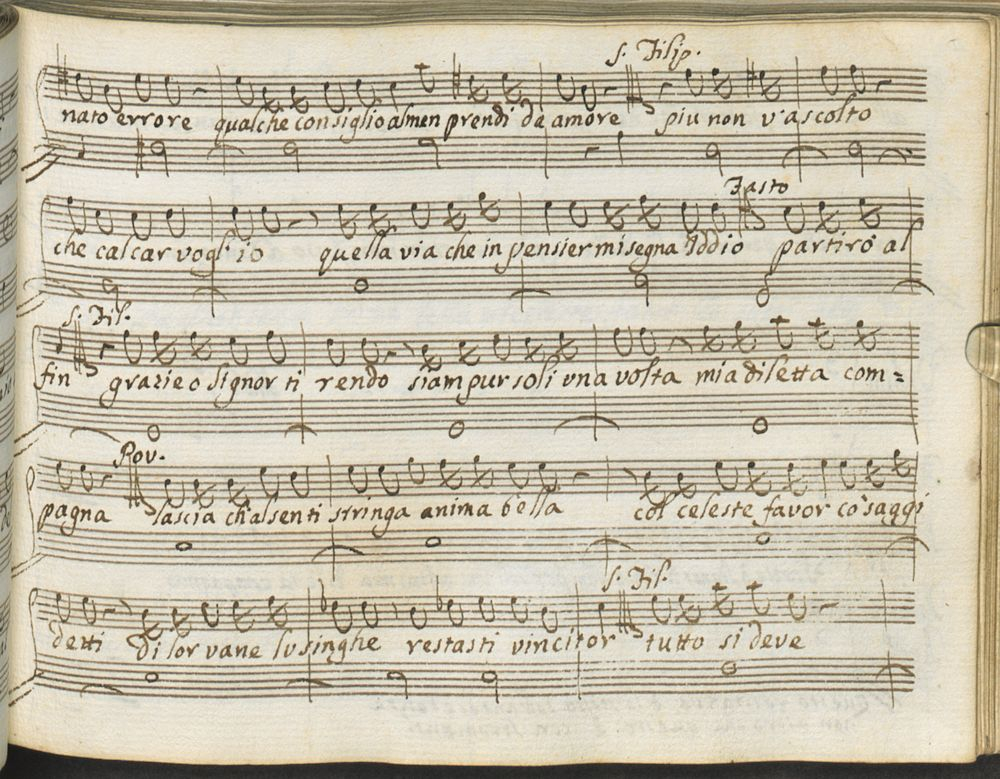 s. Filip.
nato errore qualche consiglio almen prendi da amore piu non v'ascolto
Fasto
che calcar voglio quella via che in pensier mi segna Iddio partirò al
s. Fil.
fin grazie o signor ti rendo siam pur soli una volta mia diletta com=
Pov.
pagna lascia ch'al sen ti stringa anima bella col celeste favor co' saggi
s. Fil.
detti di lor vane lusinghe restasti vincitor tutto si deve